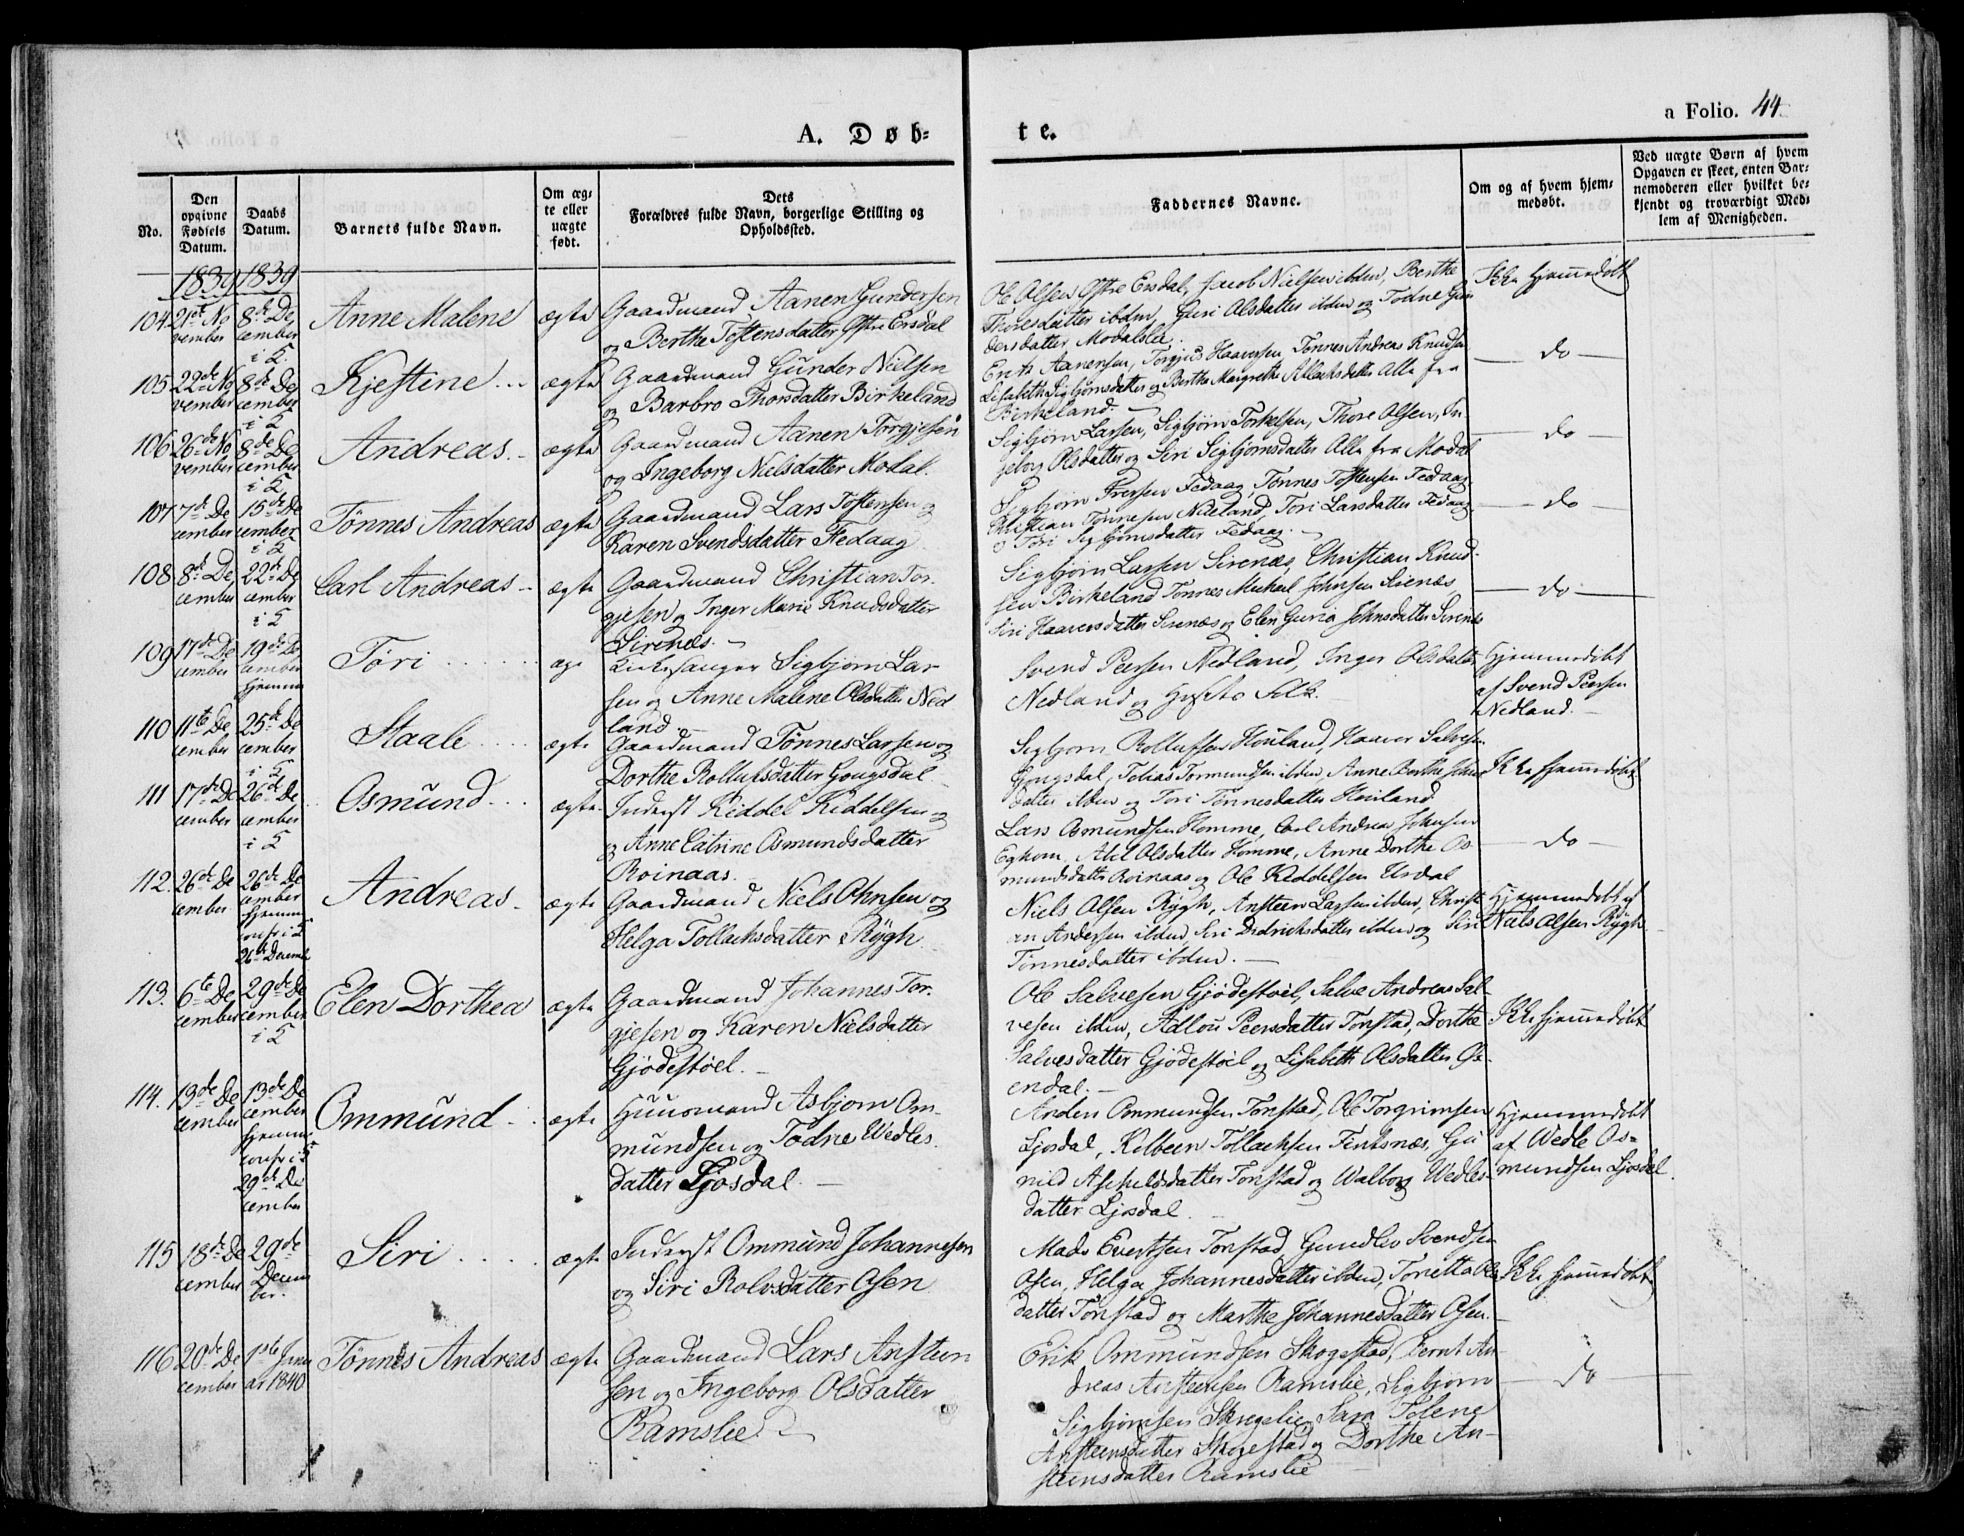 A. Døb-
te.
a Folio. 44.
No.
Den opgivne Fødsels Datum.
Daabs Datum.
Barnets fulde Navn.
Om ægte eller uægte født.
Dets Forældres fulde Navn, borgerlige Stilling og Opholdssted.
Faddernes Navne.
Om og af hvem hjemmedøbt.
Ved uægte Børn af hvem Opgaven er skeet, enten Barnemoderen eller hvilket bekjendt og troværdigt Medlem af Menigheden.
1839 1839
104 21de November
8de December
Anne Malene
ægte
Gaardmand Aanen Gundersen
og Berthe Tostensdatter Østre Ersdal
Ole Olsen Østre Ersdal, Jacob Nielsen ibden, Berthe
Thoresdatter ibden, Guri Olsdatter ibden og Todne Gun
dersdatter Modalsli.
Ikke hjemmedøbt
105 22de November
8de December
Kjestine
ægte
Gaardmand Gunder Nielsen
og Barbro Thorsdatter Birkeland
Aanensen, Torgjus Haaversen, Tønnes Andreas Knudsen
Lisabeth Sigbjørnsdatter og Berthe Margrethe Allachsdatter Alle fra
Birkeland.
do
106 26de November
8de December
Andreas
ægte
Gaardmand Aanen Torgjesen
og Ingeborg Nielsdatter Modal.
Sigbjørn Larsen, Sigbjørn Torkelsen, Thore Olsen, In
geborg Olsdatter og Siri Sigbjørnsdatter Alle fra Modal
do
107 7de December
15de December
Tønnes Andreas
ægte
Gaardmand Lars Tostensen og
Karen Svendsdatter Fedaag
Sigbjørn Fedaag, Tønnes Tostensen Fedaag
Christian Tønnesen Nedland, Tori Larsdatter Fedaag
og Tori Sigbjørnsdatter Fedaag.
do
108 8de December
22de December
Carl Andreas
ægte
Gaardmand Christian Tor-
gjesen og Inger Marie Knudsdatter
Sirenæs.
Sigbjørn Larsen Sirenæs, Christian Knud-
sen Birkeland Tønnes Michael Johnsen Sirenæs
Siri Haaversdatter Sirenæs og Elen Guria Johnsdatter Sirenæs
do
109 17de December
19de December Hjemme
Tøri
Kirkesanger Sigbjørn Lar-
sen og Anne Malene Olsdatter Ned
land
Svend Peersen Nedland, Inger Olsdatter
Nedland og
Hjemmedøbt
af Svend Peersen
Nedland.
110 11te December
25de December
Staale
ægte
Gaardmand Tønnes Larsen og
Dorthe Rolluhsdatter Gougsdal
Sigbjørn Houland, Haaver Salvesen
Gougsdal, Tobias Tormundsen ibden, Anne Berthe
datter ibden og Tori Tønnesdatter Houland
Ikke hjemmedøbt
111 17de December
26de December
Osmund
ægte
Inderst Keddel Keddelsen og
og Anne Catrine Osmundsdatter
Roinaas.
Lars Osmundsen Homme, Carl Andreas Johnsen
Eghom, Abel Olsdatter Homme, Anne Dorthe Os
mundsdatter Roinaas og Ole Keddelsen
do
112. 26de December
26de December
Hjemme
26de December
Andreas
ægte
Gaardmand Niels Ohnsen og
Helga Tollachsdatter Rÿgh
Niels Olsen Rÿgh, Ansteen Larsen ibden, Christi
an Andersen ibden, Siri Didrichsdatter ibden og Siri
Tønnesdatter ibden.
Hjemmedøbt af
Niels Olsen Rÿgh
113. 6te December
29de December
Elen Dorthea
ægte
Gaardmand Johannes Tor-
gjesen og Karen Nielsdatter
Gjødestøel.
Ole Salvesen Gjødestøel, Salve Andreas Sal-
vesen ibden, Adlou Peersdatter Tonstad, Dorthe
Salvesdatter Gjødestøel og Lisabeth Olsdatter Os-
endal.
Ikke hjemmedøbt
114. 13de December
13de December
Hjemme
29de December
Ommund
ægte
Huusmand Asbjørn Om-
mundsen og Todne Wedles
datter Ljosdal.
Anders Ommundsen Tonstad, Ole Torgrimsen
Ljosdal, Kolbeen Tollachsen Finksnæs, Gu
nild Aschildsdatter Tonstad og Walborg Wedles-
datter Ljosdal.
Hjemmedøbt
af Wedle Os-
mundsen Ljosdal.
115 18de December
29de December.
Siri
ægte
Inderst Ommund Johannesen
og Siri Rolvsdatter Osen
Mads Evertsen Tonstad, Gundlev Svendsen
Osen, Helga Johannesdatter ibden, Tonetta Ols
datter Tonstad og Marthe Johannesdatter Osen.
Ikke hjemmedøbt
116 20de December
1ste Januar 1840
Tønnes Andreas
ægte
Gaardmand Lars Ansteen
sen og Ingeborg Olsdatter
Ramslie
Erik Ommundsen Skogestad, Bernt An-
dreas Ansteensen Ramslie, Sigbjørn
Sigbjørnsen Skregelie, Sara Tolene
Ansteensdatter Skogestad og Dorthe An-
steensdatter Ramslie
do